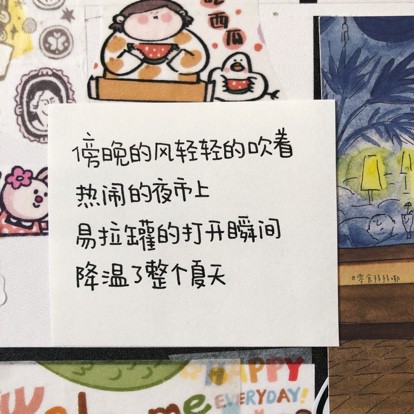 吃西瓜
傍晚的风轻轻的吹着
热闹的夜市上
易拉罐的打开瞬间
降温了整个夏天
HAPPY
EVERYDAY!